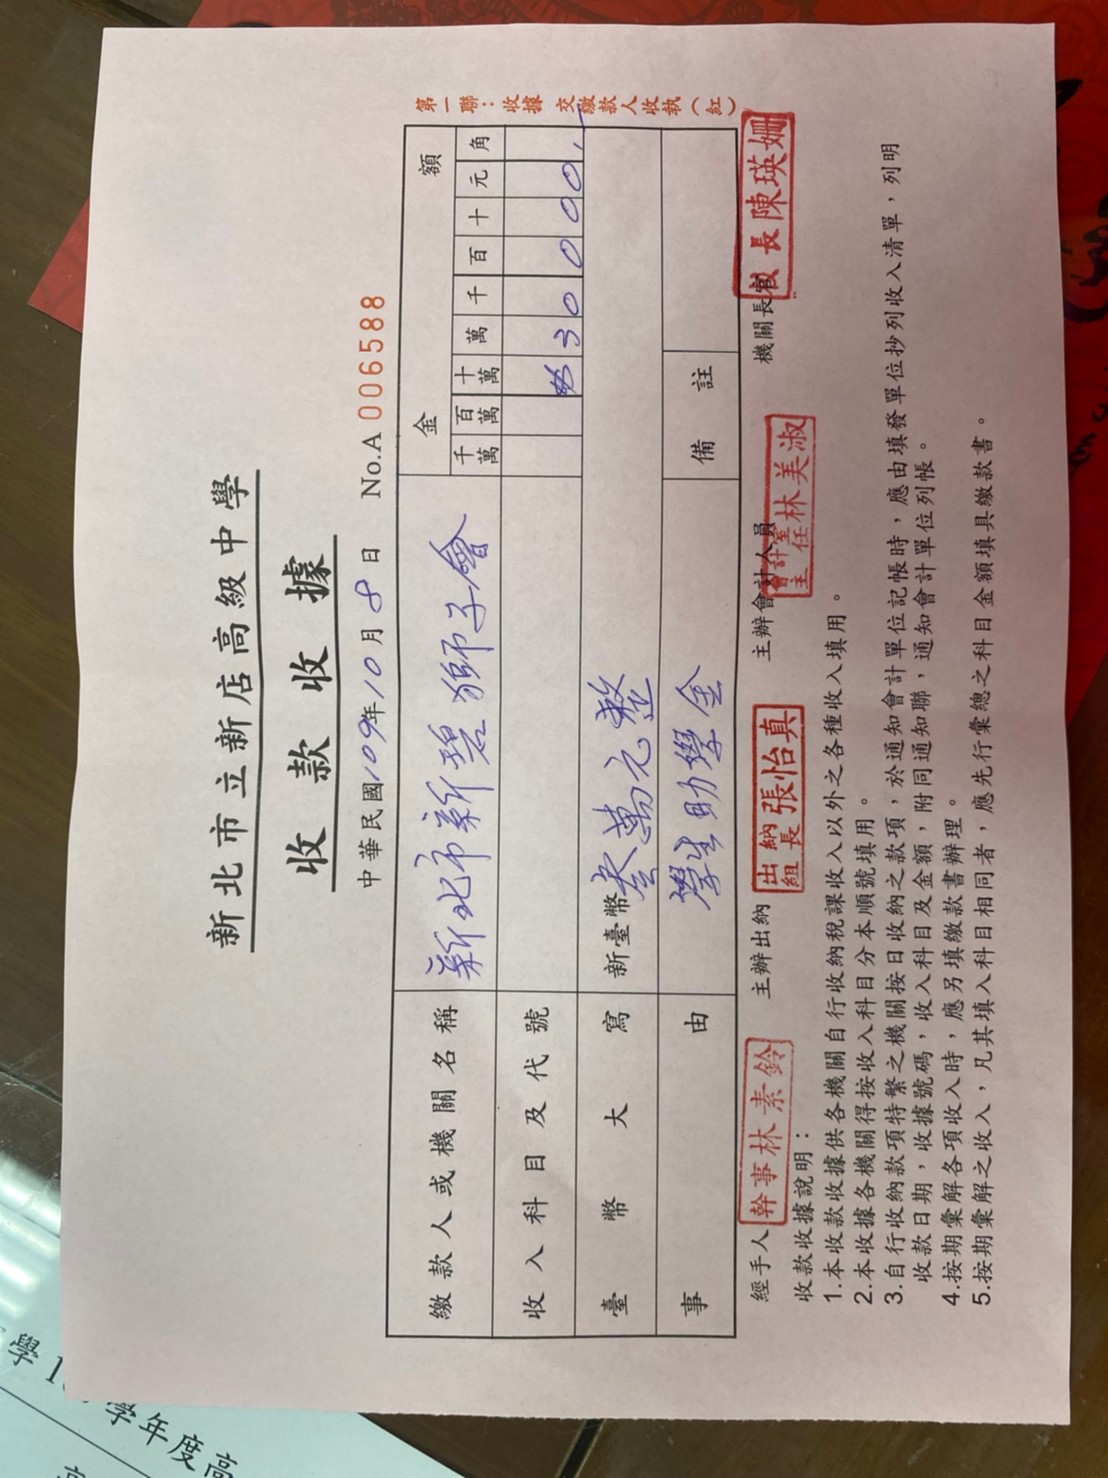 新北市立新店高級中學
收款收據
中華民國109年10月8日 No.A 006588
第一聯：收據 交繳款人收執（紅）
繳款人或機關名稱 新北市新碧獅子會
金額
千萬 百萬 十萬 萬 千 百 十 元 角
收入科目及代號 30000
臺幣大寫 新臺幣參萬元整
事由 學生助學金 備註
經手人 幹事林素鈴 主辦出納 出納組長張怡真 主辦會計人員 會計室主任林美淑 機關長官 校長陳瑛姍
收款收據說明：
1.本收款收據供各機關自行收納稅課收入以外之各種收入填用。
2.本收據各機關得按收入科目分本順號填用。
3.自行收納款項特繁之機關按日收納之款項，於通知會計單位記帳時，應由填發單位抄列收入清單，列明
收款日期，收據號碼，收入科目及金額，附同通知聯，通知會計單位列帳。
4.按期彙解各項收入時，應另填繳款書辦理。
5.按期彙解之收入，凡其填入科目相同者，應先行彙總之科目金額填具繳款書。
學年度高